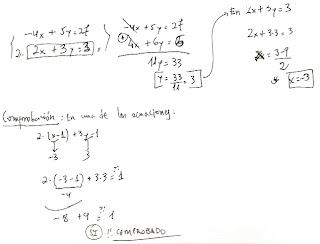 -4x + 5y = 27
2. 2x + 3y = 3
-4x + 5y = 27
4x + 6y = 6
11y = 33
y = 33/11 = 3
En 2x + 3y = 3
2x + 3·3 = 3
x = 3-9/2
x = -3
Comprobación: En una de las ecuaciones:
2·(x-1) + 3y = 1
-3 3
2·(-3-1) + 3·3 = 1
-4
-8 + 9 = 1
SI COMPROBADO